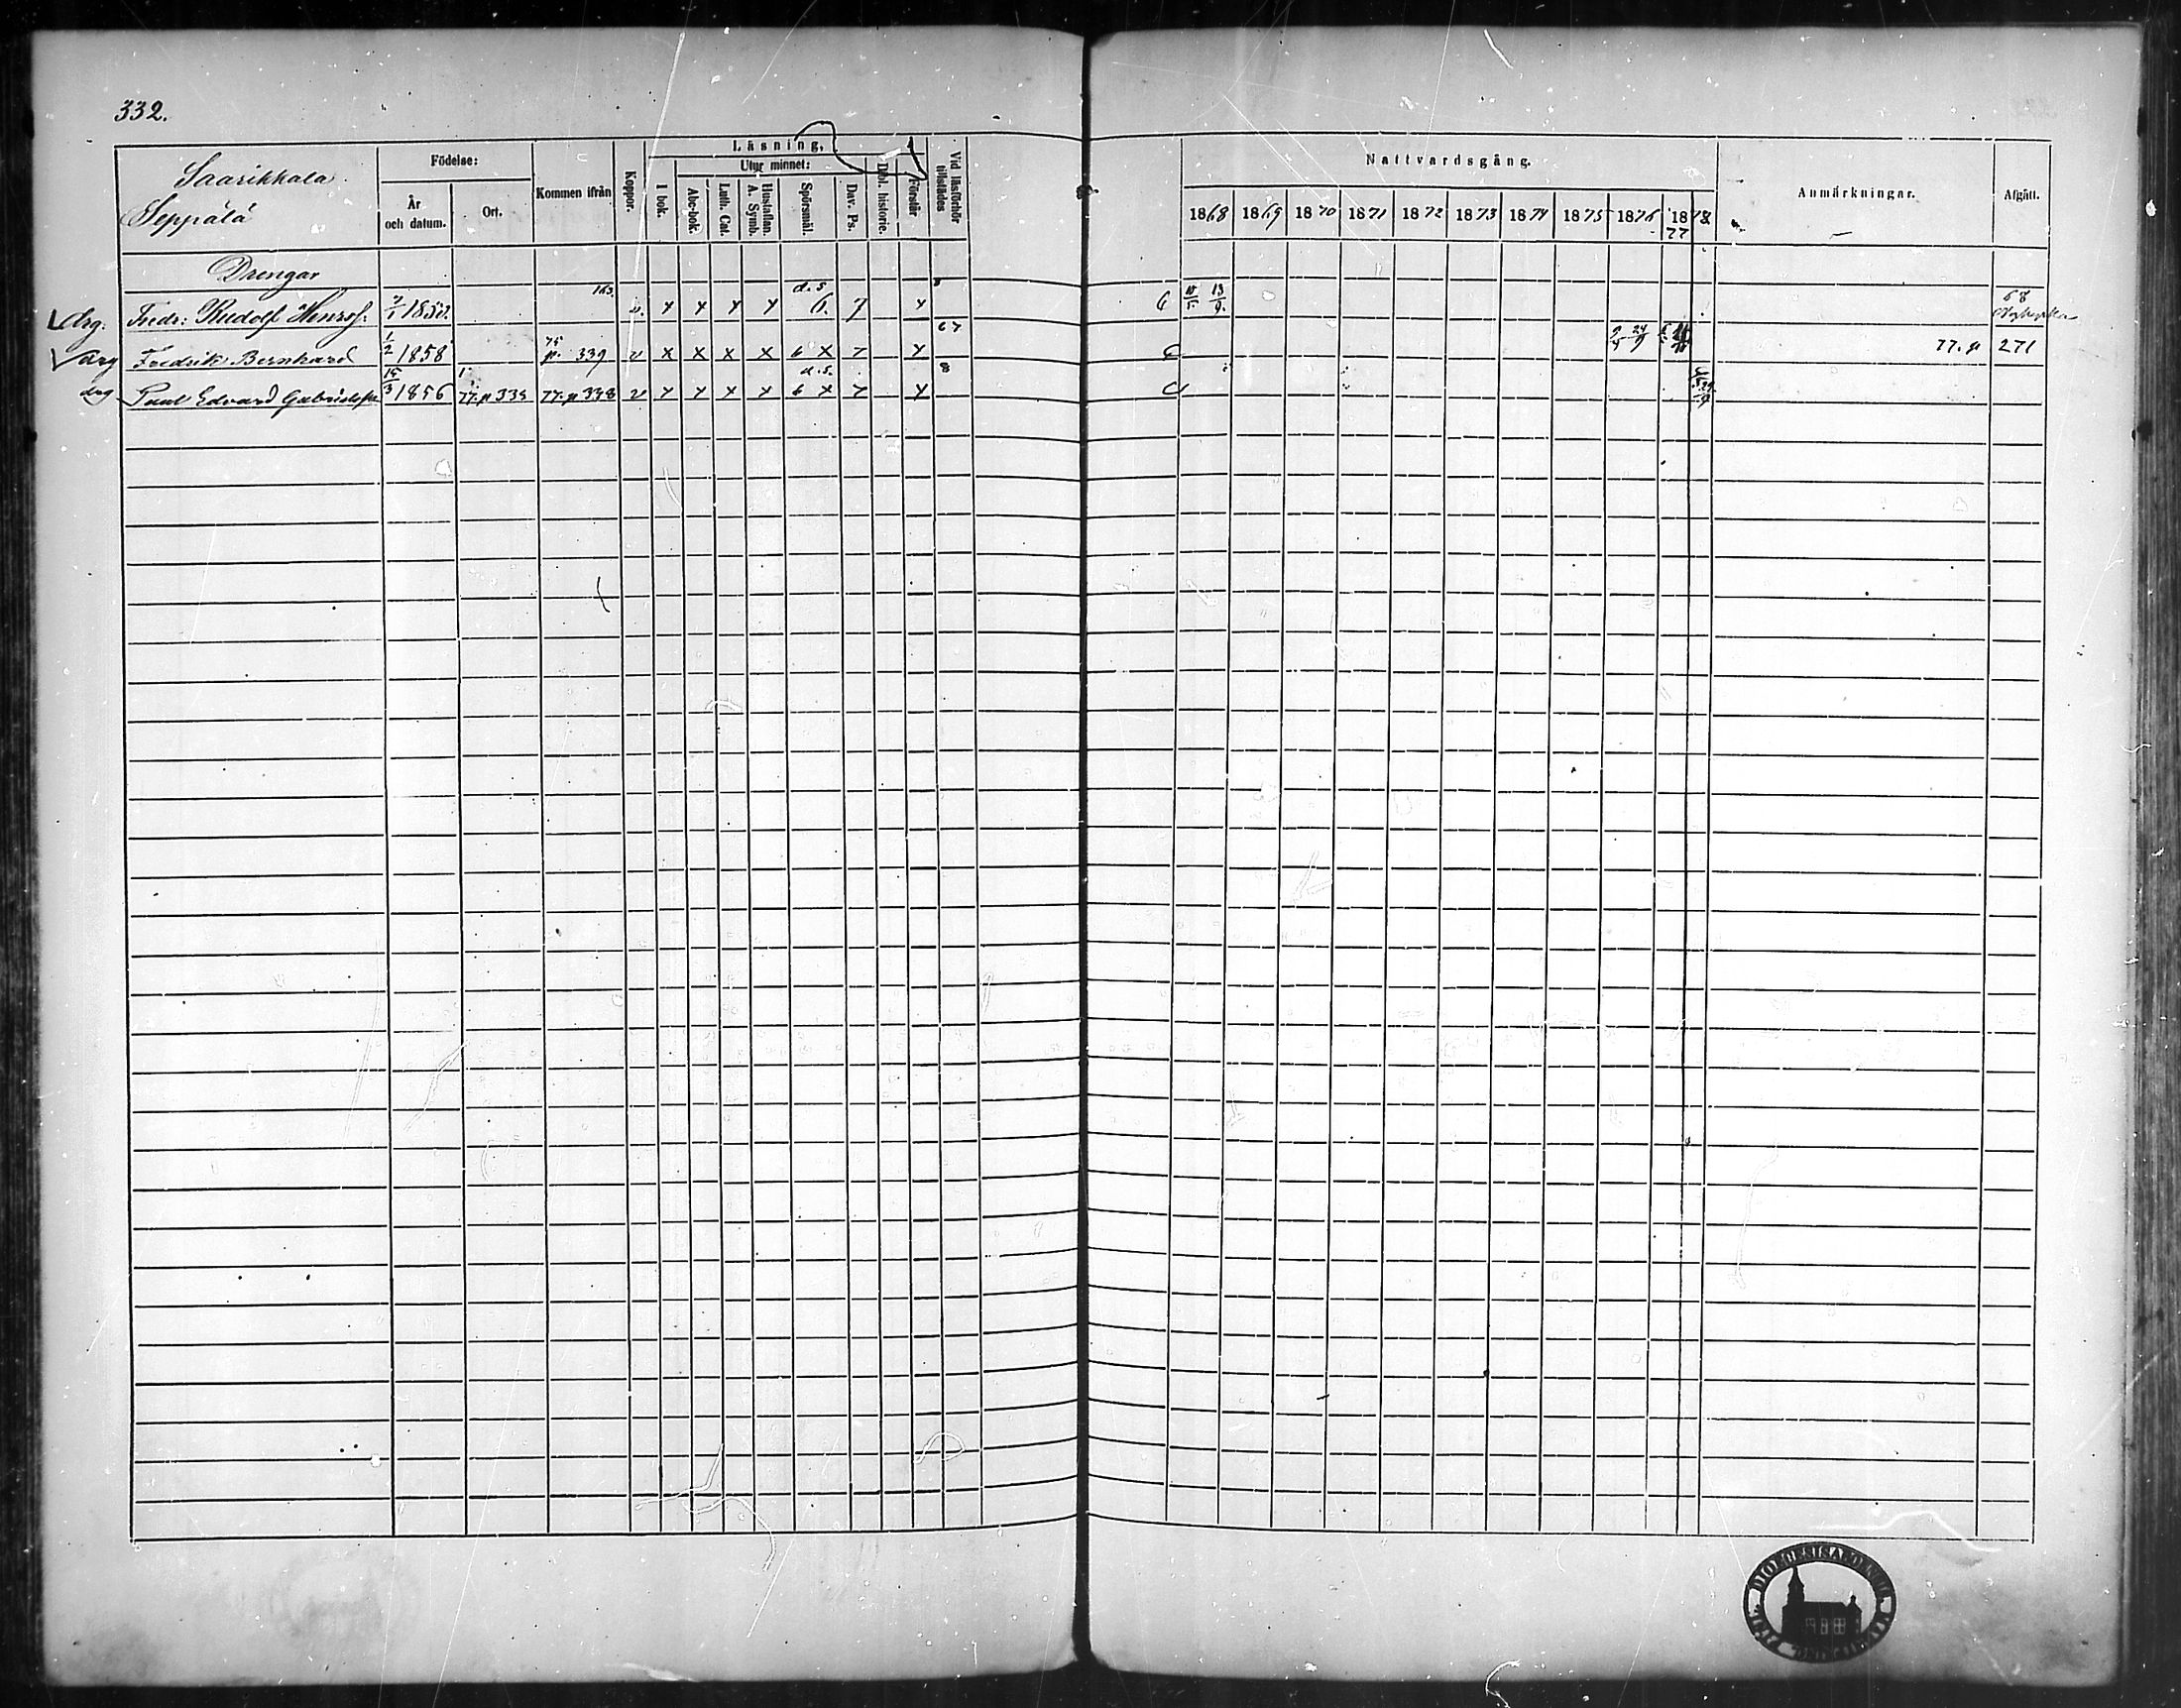 332.
Saarikkala.
Seppälä
Födelse:
År och datum.
Ort.
Kommen ifrån
Koppor.
Läsning.
I bok.
Utur minnet:
Abc-bok.
Luth. Cat.
Hustaflan. A. Symb.
Spörsmål.
Dav. Ps.
Bibl. historie.
Förstår
Vid läsförhör tillstädes
Nattvardsgång.
1868 1869 1870 1871 1872 1873 1874 1875 1876 1877 78
Anmärkningar.
Afgått.
Drengar
drg. Fredr: Rudolf Henrsf. 1852 v. x x x x d.s 6. 7 x 68
drg Fredrik Bernhard 1/2 1858 75 p. 339 v x x x x 6 x 7 x 67 77. p 271
drg Paul Edvard Gabrielsf. 15/3 1856 77. p 335 77. p 338 v x x x x d.s. 6 x 7 x 8